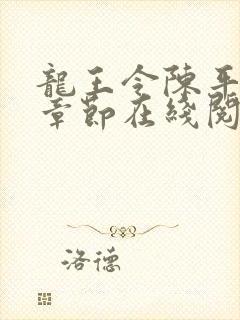 龍王令陳平
章節在綫閱
洛德